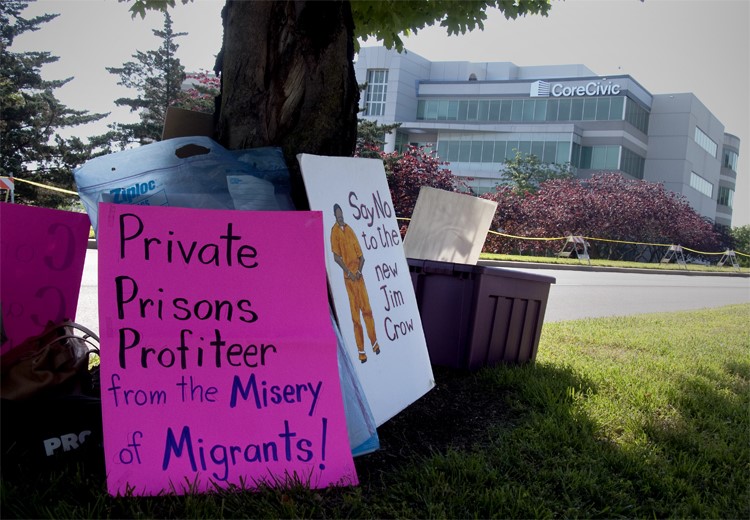 CoreCivic
Ziploc
Private
Prisons
Profiteer
from the Misery
of Migrants!
Say No
to the
new
Jim
Crow
PRO